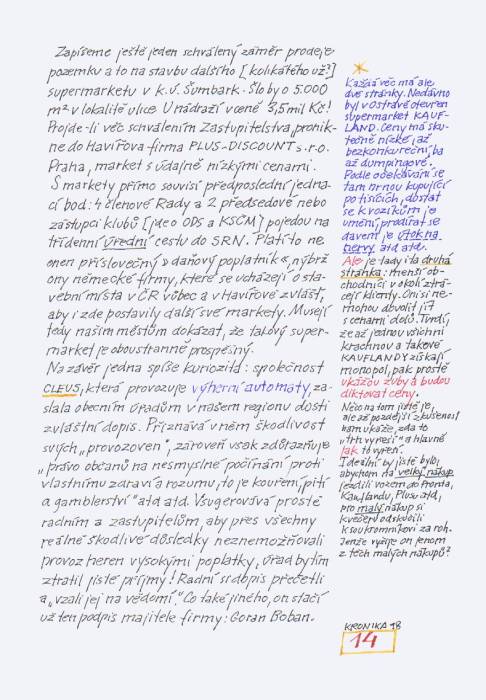 Zapíšeme ještě jeden schválený záměr prodeje
pozemku a to na stavbu dalšího [kolikátého už?]
supermarketu v k.ú. Šumbark. Šlo by o 5.000
m² v lokalitě ulice U nádraží v ceně 3,5 mil Kč!
Projde-li věc schválením Zastupitelstva, pronik-
ne do Havířova firma PLUS-DISCOUNT s.r.o.
Praha, market s údajně nízkými cenami.
S markety přímo souvisí předposlední jedna-
cí bod: 4 členové Rady a 2 předsedové nebo
zástupci klubů [jde o ODS a KSČM] pojedou na
třídenní úřední cestu do SRN. Platí to ne
onen příslovečný »daňový poplatník«, nýbrž
ony německé firmy, které se ucházejí o sta-
vební místa v ČR vůbec a v Havířově zvlášť,
aby i zde postavily další své markety. Musejí
tedy našim městům dokázat, že takový super-
market je oboustranně prospěšný.
Na závěr jedna spíše kuriozita: společnost
CLEUS, která provozuje výherní automaty, za-
slala obecním úřadům v našem regionu dosti
zvláštní dopis. Přiznává v něm škodlivost
svých „provozoven", zároveň však zdůrazňuje
„právo občanů na nesmyslné počínání proti
vlastnímu zdraví a rozumu, to je kouření, pití
a gamblerství" atd atd. Vsugerovává prostě
radním a zastupitelům, aby přes všechny
reálné škodlivé důsledky neznemožňovali
provoz heren vysokými poplatky, úřad by tím
ztratil jisté příjmy! Radní si dopis přečetli
a „vzali jej na vědomí." Co také jiného, on stačí
už ten podpis majitele firmy: Goran Boban.
Každá věc má ale
dvě stránky. Nedávno
byl v Ostravě otevřen
supermarket KAUF-
LAND. Ceny má sku-
tečně nízké, až
bezkonkurenční, ba
až dumpingové.
Podle očekávání se
tam hrnou kupující
po tisících, dostat
se k vozíkům je
umění, prodírat se
davem je útok na
nervy atd atd.
Ale je tady i ta druhá
stránka: menší ob-
chodníci v okolí ztrá-
cejí klienty. Oni si ne-
mohou dovolit jít
s cenami dolů. Tvrdí,
že až jednou všichni
krachnou a takové
KAUFLANDY získají
monopol, pak prostě
ukážou zuby a budou
diktovat ceny.
Něco na tom jistě je,
ale až pozdější zkušenost
nám ukáže, zda to
„trh vyřeší" a hlavně
jak to vyřeší.
Ideální by jistě bylo,
abychom na velký nákup
jezdili vozem do Pronta,
Kauflandu, Plusu atd,
pro malý nákup si
k večeru odskočili
k soukromníkovi za roh.
Jenže vyžije on jenom
z těch malých nákupů?
KRONIKA 98
14